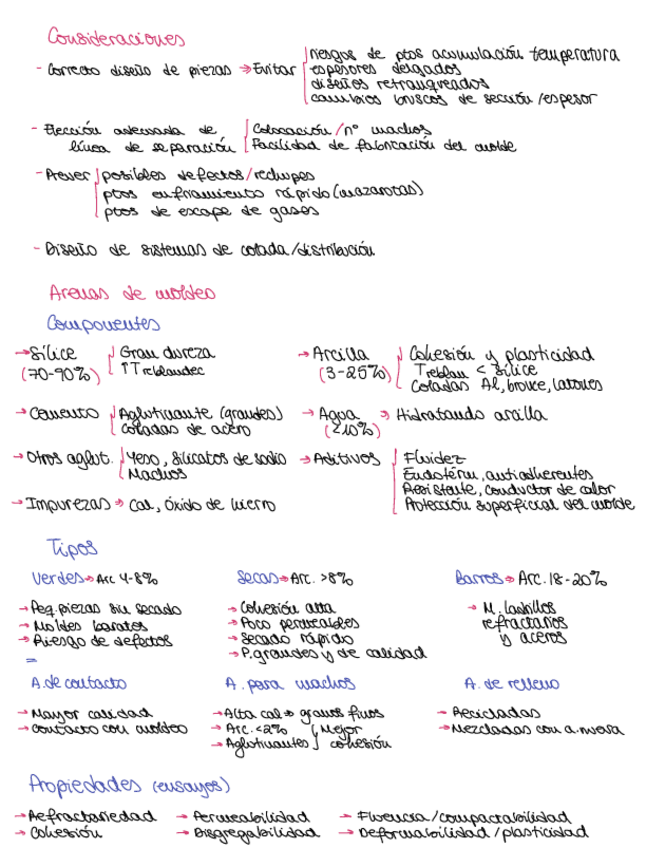 Consideraciones
- Correcto diseño de piezas → Evitar
riesgos de ptos acumulación temperatura
espesores delgados
diseños retranqueados
cambios bruscos de sección/espesor
- Elección adecuada de línea de separación
Colocación/nº machos
Facilidad de fabricación del molde
- Prever
posibles defectos/rechupes
ptos enfriamiento rápido (mazarotas)
ptos de escape de gases
- Diseño de sistemas de colada/distribución
Arenas de moldeo
Componentes
→ Sílice (70-90%)
Gran dureza
↑T reblandec
→ Arcilla (3-25%)
Cohesión y plasticidad
T reblan < sílice
Coladas Al, bronce, latones
→ Cemento
Aglutinante (grandes)
Coladas de acero
→ Agua (<10%) → Hidratando arcilla
→ Otros aglut.
Yeso, silicatos de sodio
Machos
→ Aditivos
Fluidez
Endotérm, antiadherentes
Resistente, conductor de calor
Protección superficial del molde
→ Impurezas → Cal, óxido de hierro
Tipos
Verdes → Arc 4-8%
→ Peq. piezas sin secado
→ Moldes baratos
→ Riesgo de defectos
=
Secas → Arc. >8%
→ Cohesión alta
→ Poco permeables
→ Secado rápido
→ P. grandes y de calidad
Barros → Arc. 18-20%
→ M. ladrillos refractarios y aceros
A. de contacto
→ Mayor calidad
→ Contacto con moldeo
A. para machos
→ Alta cal → granos finos
→ Arc. <2%
→ Aglutinantes
Mejor cohesión
A. de relleno
→ Recicladas
→ Mezcladas con a. nueva
Propiedades (ensayos)
→ Refractariedad → Permeabilidad → Fluencia/compactabilidad
→ Cohesión → Disgregabilidad → Deformabilidad/plasticidad